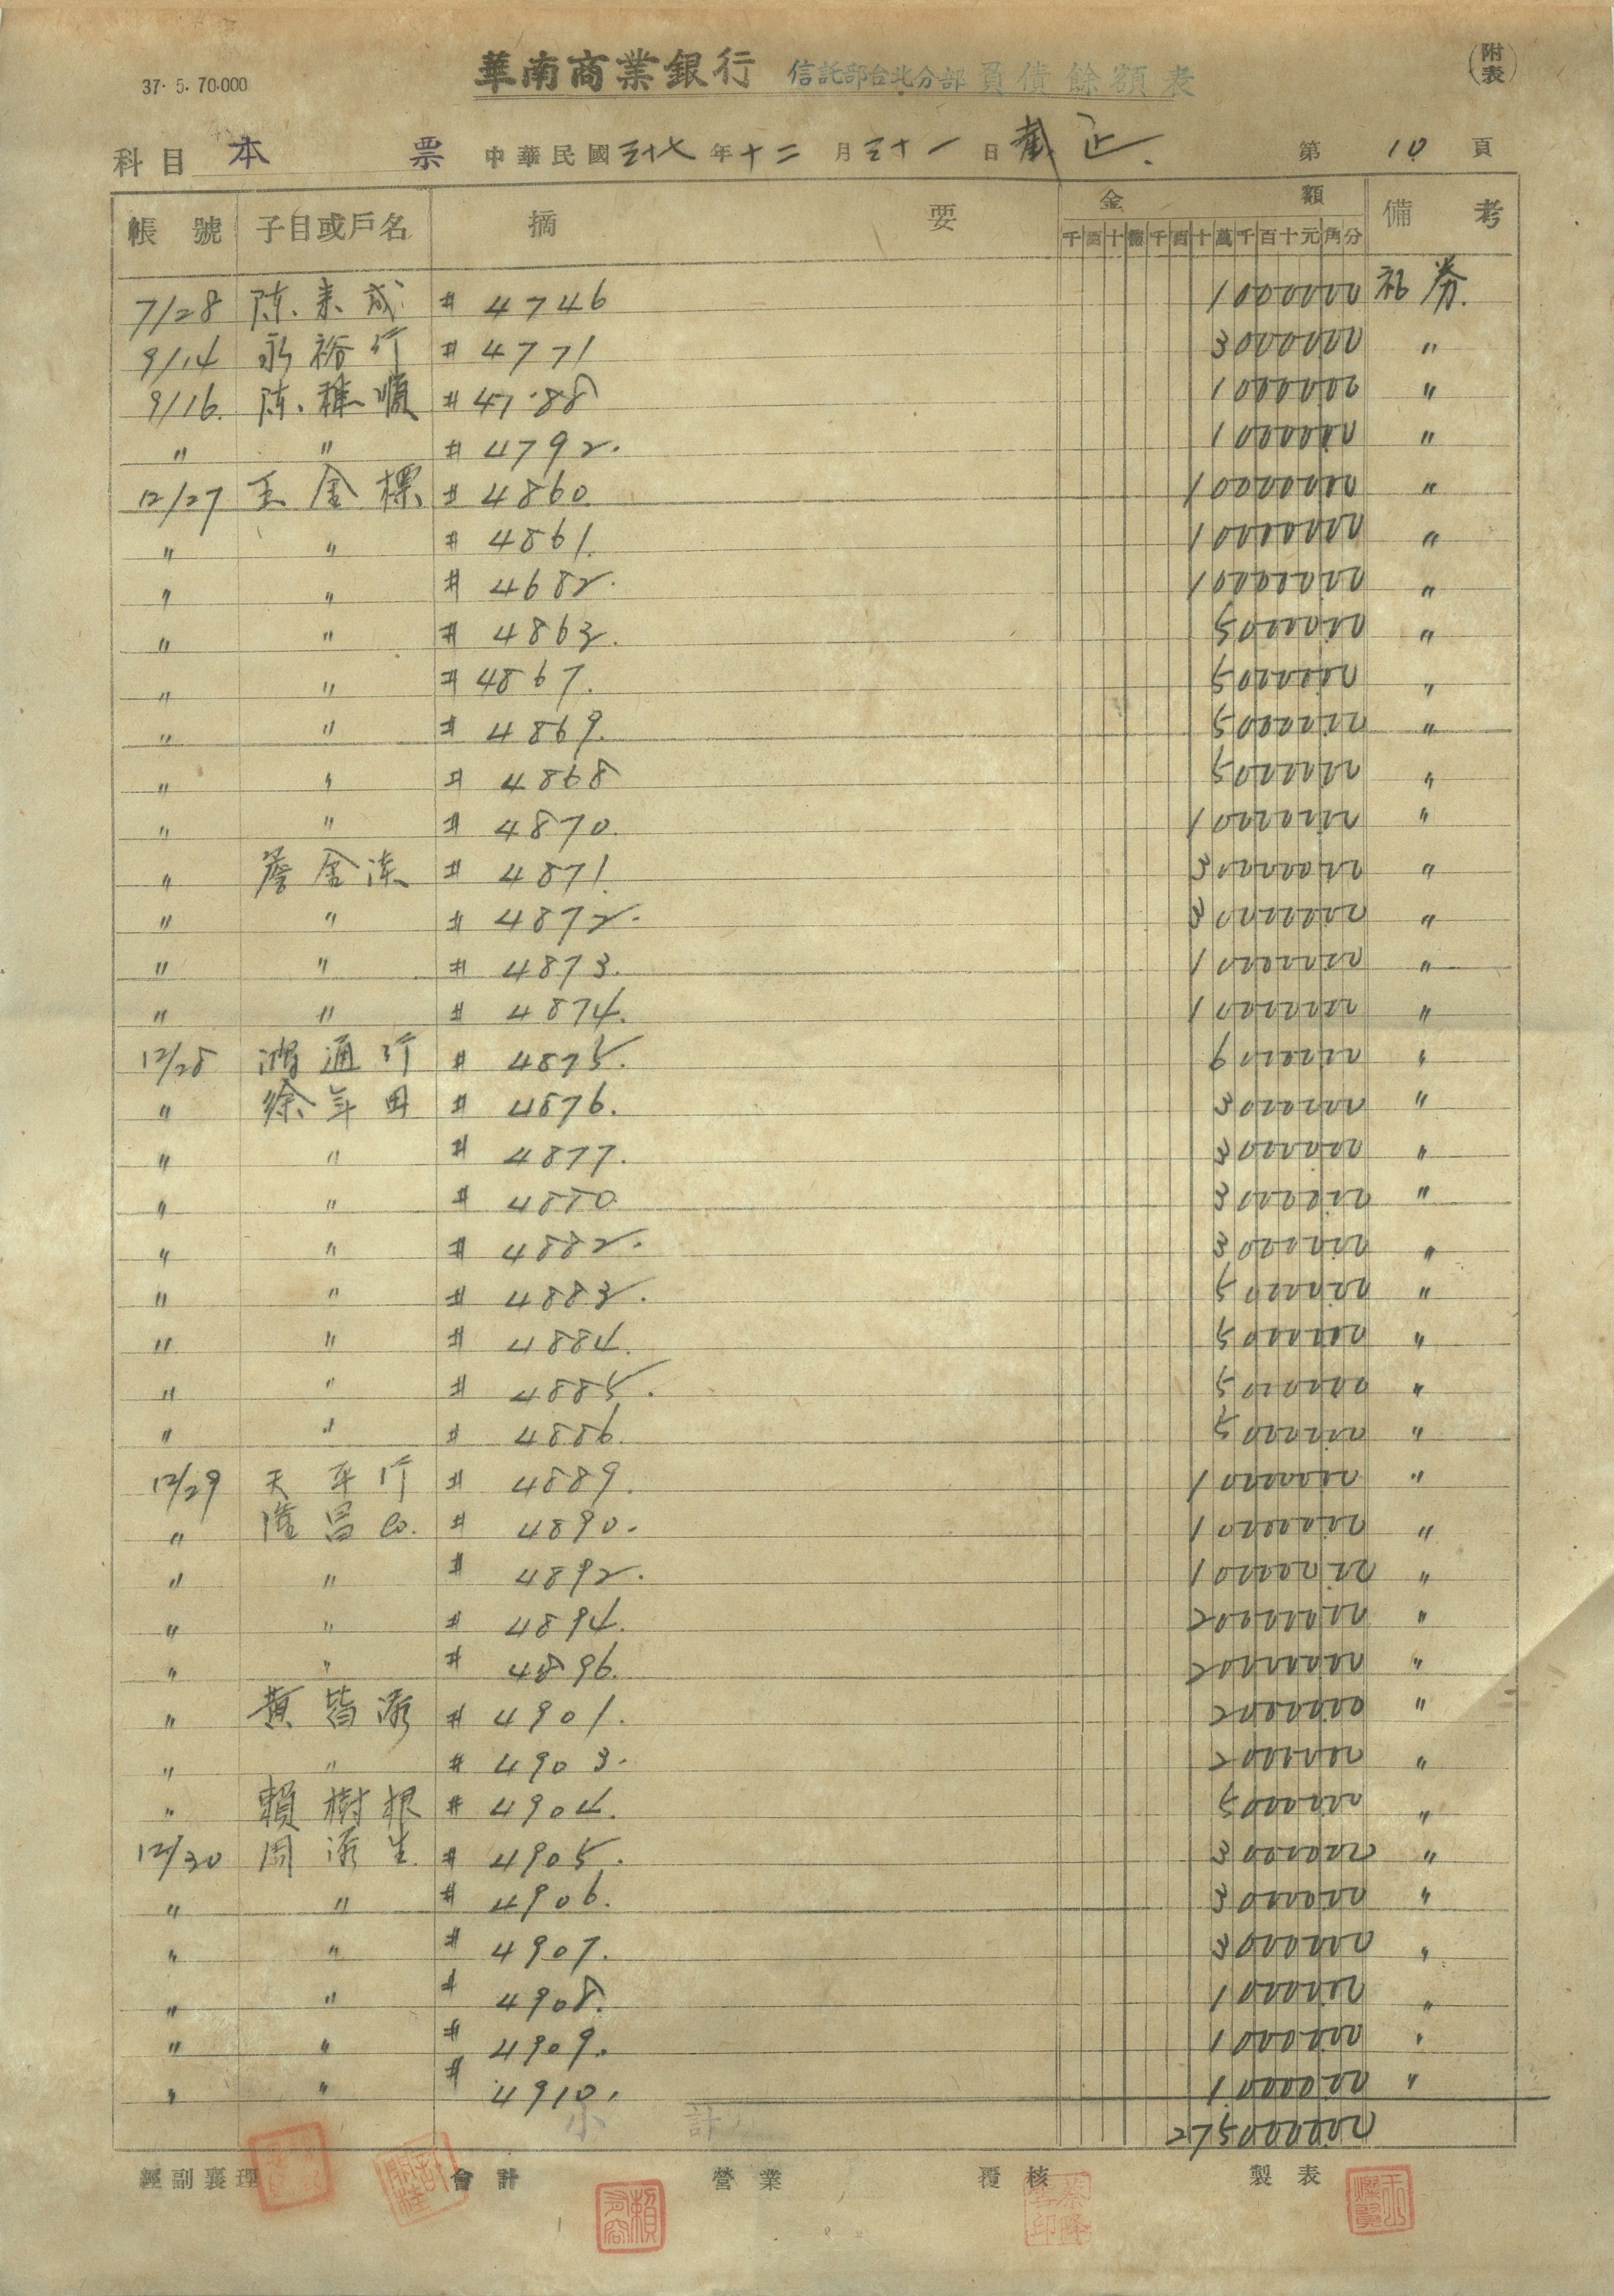 37. 5. 70.000
華南商業銀行 信託部台北分部 負債餘額表
(附表)
科目 本票 中華民國三十七年十二月三十一日截止. 第10頁
帳號 子目或戶名 摘要 金額 備考
千百十億千百十萬千百十元角分
7/28 陈来成 # 4746 1000000 礼券.
9/14 永裕行 # 4771 3000000 〃
9/16. 陈雅順 # 4788 1000000 〃
〃 〃 # 4792. 1000000 〃
12/27 王金標 # 4860. 10000000 〃
〃 〃 # 4861. 10000000 〃
〃 〃 # 4682. 10000000 〃
〃 〃 # 4863. 5000000 〃
〃 〃 # 4867. 5000000 〃
〃 〃 # 4869. 5000000 〃
〃 〃 # 4868 5000000 〃
〃 〃 # 4870. 10000000 〃
〃 詹金涷 # 4871. 30000000 〃
〃 〃 # 4872. 30000000 〃
〃 〃 # 4873. 10000000 〃
〃 〃 # 4874. 10000000 〃
12/28 鴻通行 # 4875. 6000000 〃
〃 徐年田 # 4876. 3000000 〃
〃 〃 # 4877. 3000000 〃
〃 〃 # 4880 3000000 〃
〃 〃 # 4882. 3000000 〃
〃 〃 # 4883. 5000000 〃
〃 〃 # 4884. 5000000 〃
〃 〃 # 4885. 5000000 〃
〃 〃 # 4886. 5000000 〃
12/29 天平行 # 4889. 10000000 〃
〃 隆昌Co. # 4890. 10000000 〃
〃 〃 # 4892. 10000000 〃
〃 〃 # 4894. 20000000 〃
〃 〃 # 4896. 20000000 〃
〃 黄皆添 # 4901. 2000000 〃
〃 〃 # 4903. 2000000 〃
〃 賴樹根 # 4904. 5000000 〃
12/30 周添生 # 4905. 3000000 〃
〃 〃 # 4906. 3000000 〃
〃 〃 # 4907. 3000000 〃
〃 〃 # 4908. 1000000 〃
〃 〃 # 4909. 1000000 〃
〃 〃 # 4910. 1000000 〃
小計 275000000
經副襄理 會計 營業 覆核 製表